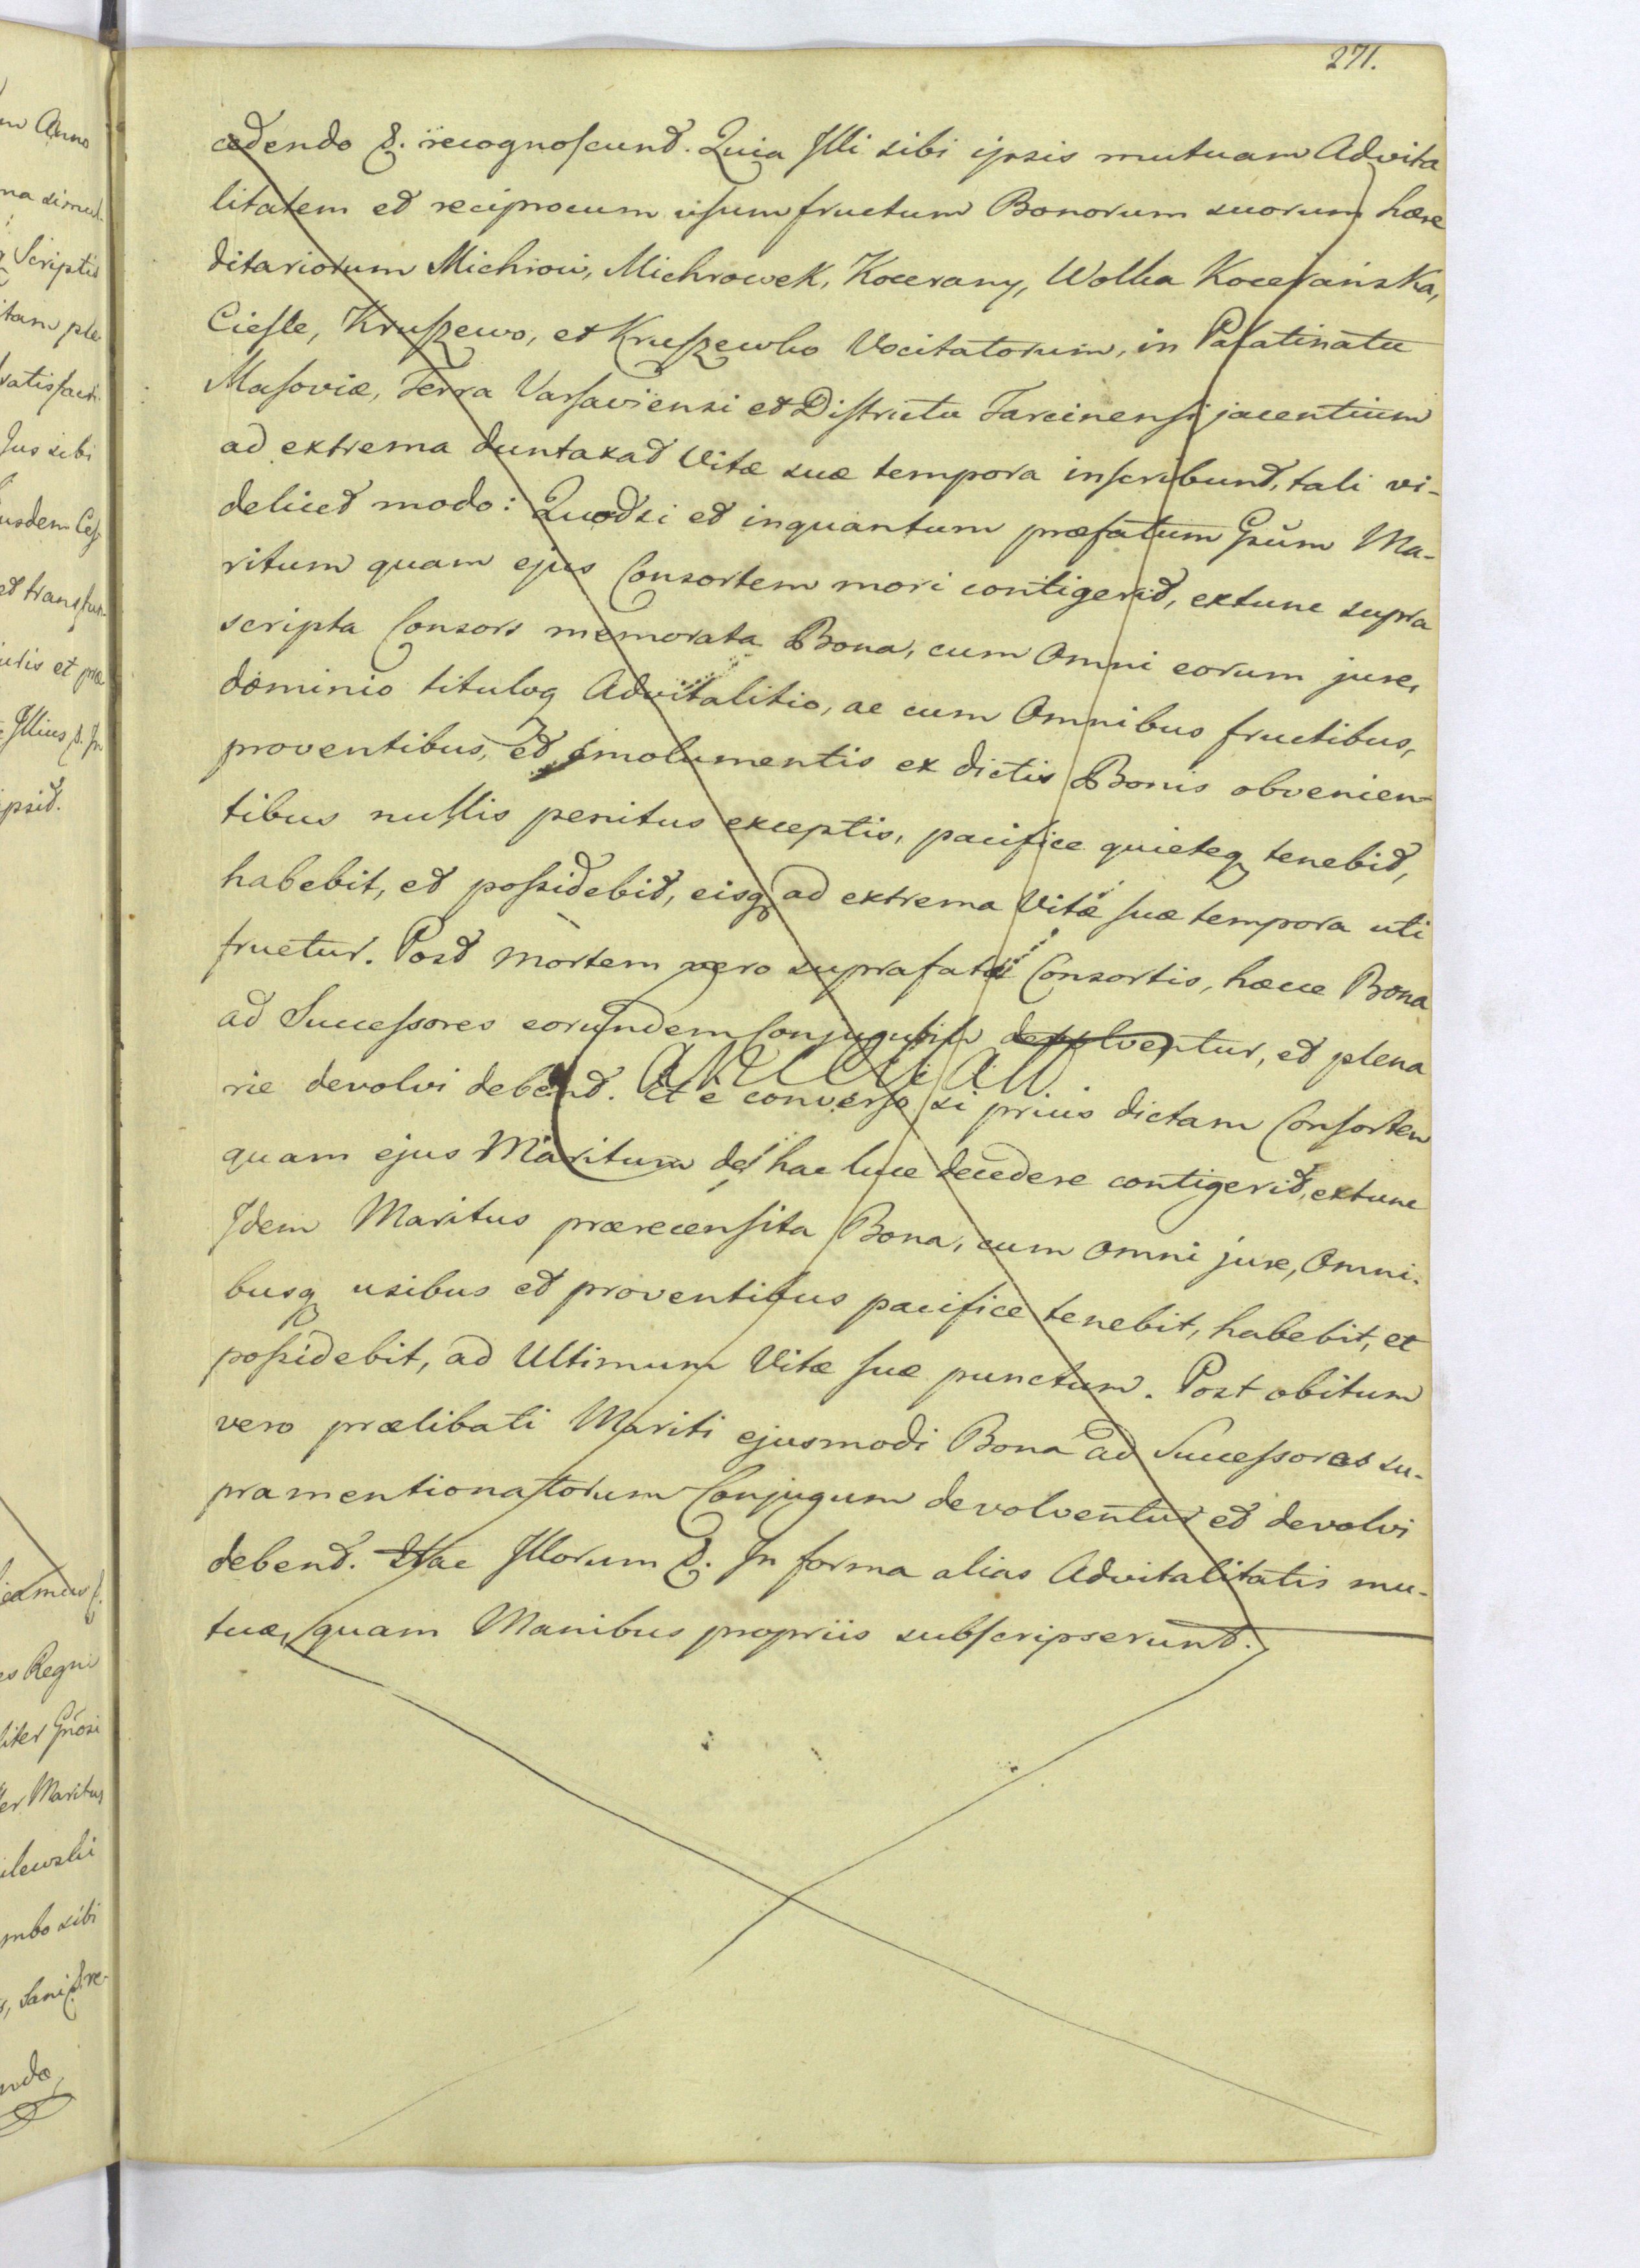 271.
cedendo &. recognoscunt. Quia Illi sibi ipsis mutuam Advita
litatem et reciprocum usumfructum Bonorum suorum hære
ditariorum Michrow, Michrowek, Kocerany, Wolka Koceranska,
Ciesle, Kruszewo, et Kruszewko Vocitatorum, in Palatinatu
Masoviæ, Terra Varsaviensi et Districtu Tarcinensi jacentium
ad extrema duntaxat Vitæ suæ tempora inscribunt, tali vi-
delicet modo: Quodsi et inquantum præfatum Gsum Ma-
ritum quam ejus Consortem mori contigerit, extunc supra
scripta Consors memorata Bona, cum Omni eorum jure,
dominio tituloq Advitalitio, ac cum Omnibus fructibus,
proventibus, et Emolumentis ex dictis Bonis obvenien-
tibus nullis penitus exceptis, pacifice quieteq tenebit,
habebit, et possidebit, eisq ad extrema Vitæ suæ tempora uti
fruetur. Post mortem vero suprafatæ Consortis, hæcce Bona
ad Successores eorundem Conjugum devolventur, et plena
rie devolvi debent. Et e converso si prius dictam Consortem
quam ejus Maritum de hac luce decedere contigerit, extunc
Idem Maritus prærecensita Bona, cum Omni jure, Omni-
busq usibus et proventibus pacifice tenebit, habebit, et
possidebit, ad Ultimum Vitæ suæ punctum. Post obitum
vero prælibati Mariti ejusmodi Bona ad Successores su-
pramentionatorum Conjugum devolventur et devolvi
debent. Hac Illorum &. In forma alias Advitalitatis mu-
tuæ, quam Manibus propriis subscripserunt.